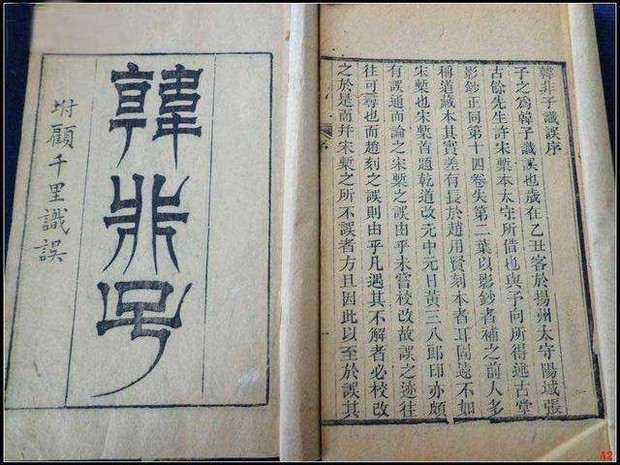 韓非子識誤序
予之為韓子識誤也歲在乙丑客於揚州太守陽城張
古餘先生許宋槧本太守所借也與予向所得述古堂
影鈔正同第十四卷失第二葉以影鈔者補之前人多
稱道藏本其實差有長於趙用賢刻本者耳固遠不如
宋槧也宋槧首題乾道改元中元日黃三八郎印亦頗
有誤通而論之宋槧之誤由乎未嘗校改故誤之迹往
往可尋也而趙刻之誤則由乎凡遇其不解者必校改
之於是而幷宋槧之所不誤者方且因此以至於誤其
韓非子
坿顧千里識誤